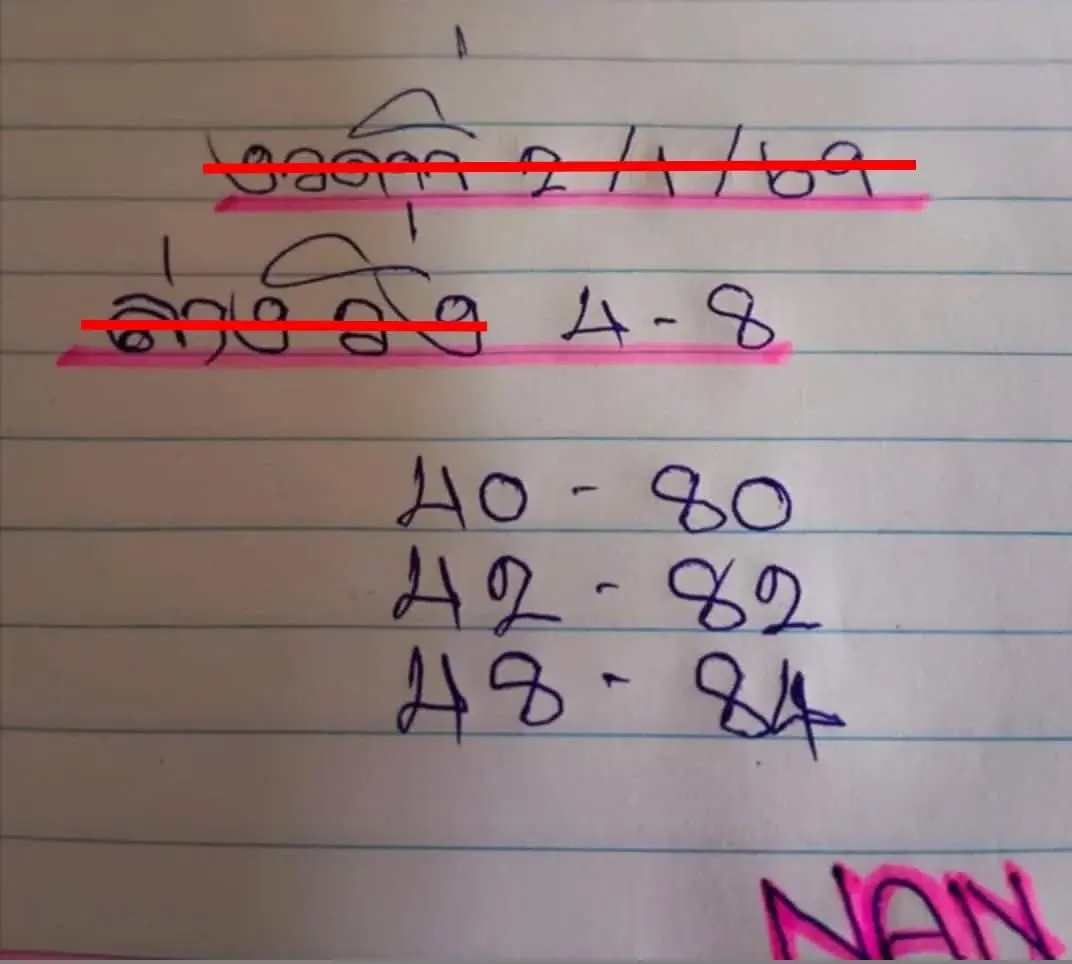 งวดที่ 2/1/69
ล่าง วิ่ง 4-8
40 - 80
42 - 82
48 - 84
NAN